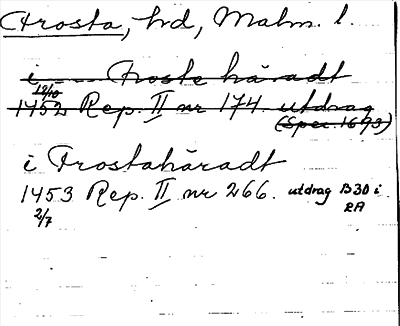 Frosta, hd, Malm. l.
i - - - Froste häradt
12/10
1452 Rep. II nr 174. utdrag
(Spec. 1693)
i Frostahäradt
1453 Rep. II nr 266. utdrag B30 i
2/7 RA